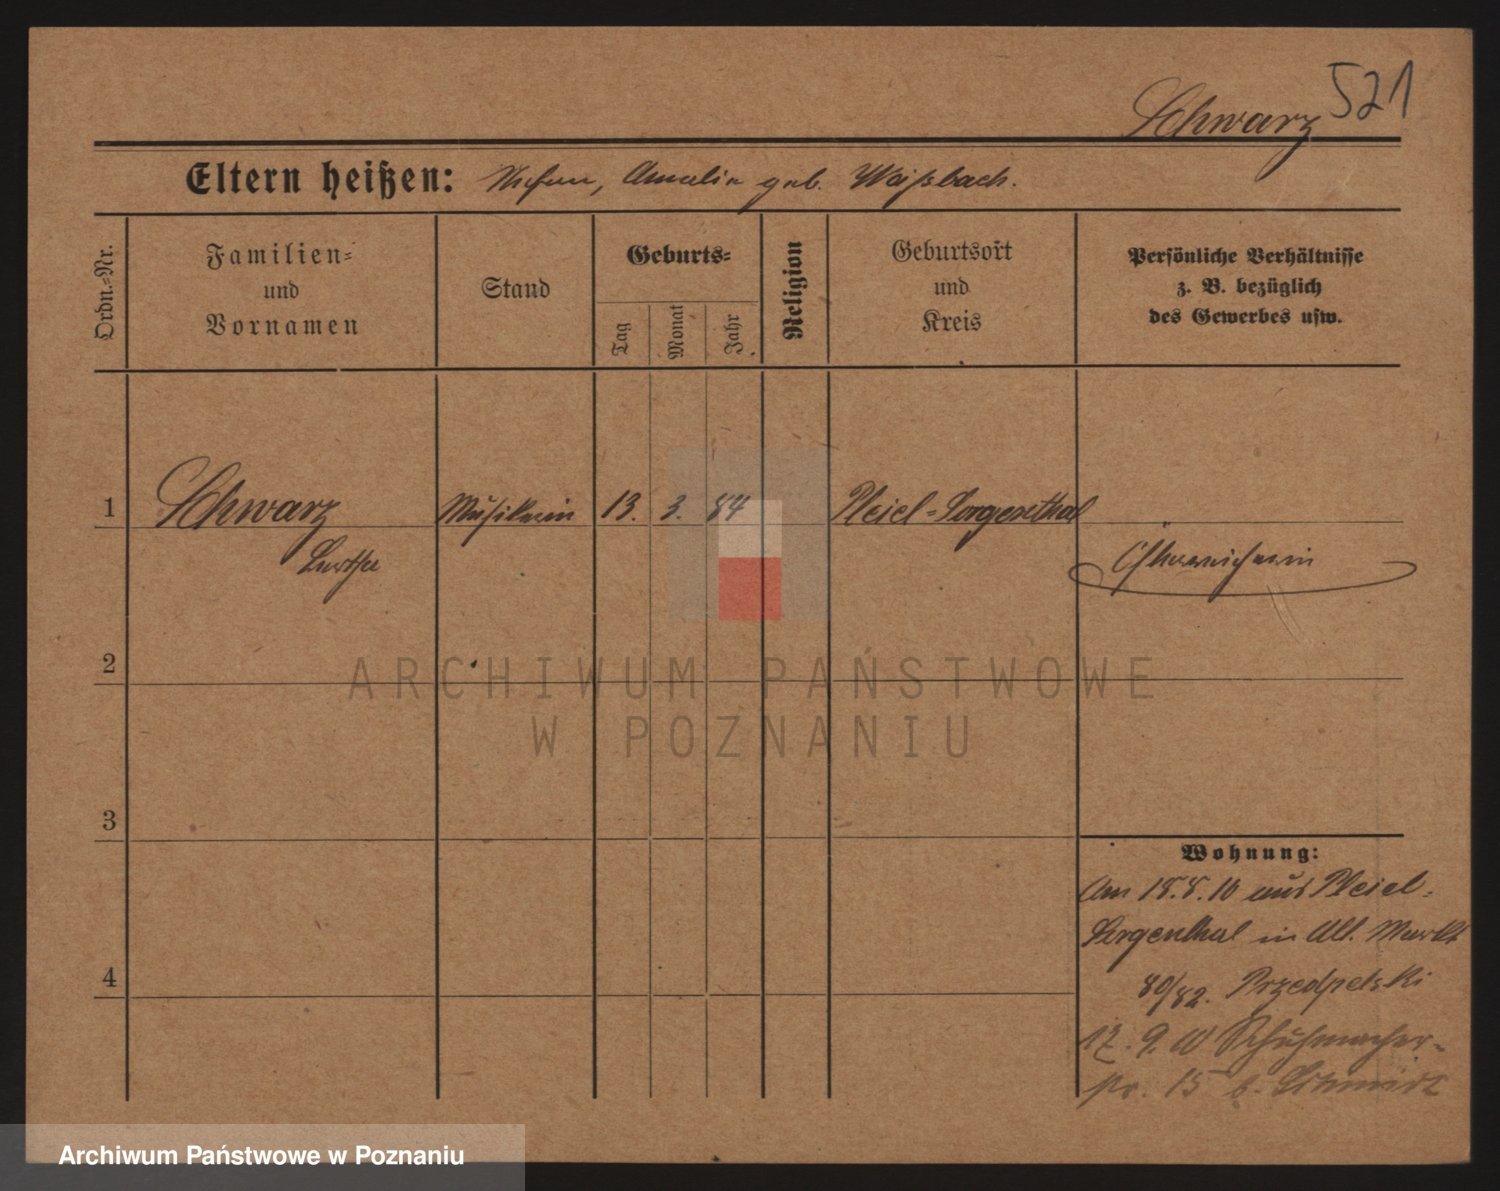 521
Schwarz
Eltern heißen: Amalie geb. Waißbach.
Ordn.-Nr.
Familien- und Vornamen
Stand
Geburts-
Tag
Monat
Jahr
Religion
Geburtsort und Kreis
Persönliche Verhältnisse z. B. bezüglich des Gewerbes usw.
1 Schwarz Musikerin 13. 3. 84 Pleiel-Sorgenthal
Österreicherin
2
3
4
Wohnung:
Am 18.8.10 aus Pleiel-
Sorgenthal in Alt. Markt
80/82. Przedpelski
17. 9. 10 Schuhmacher-
str. 15 b. Schmidt
ARCHIWUM PAŃSTWOWE
W POZNANIU
Archiwum Państwowe w Poznaniu